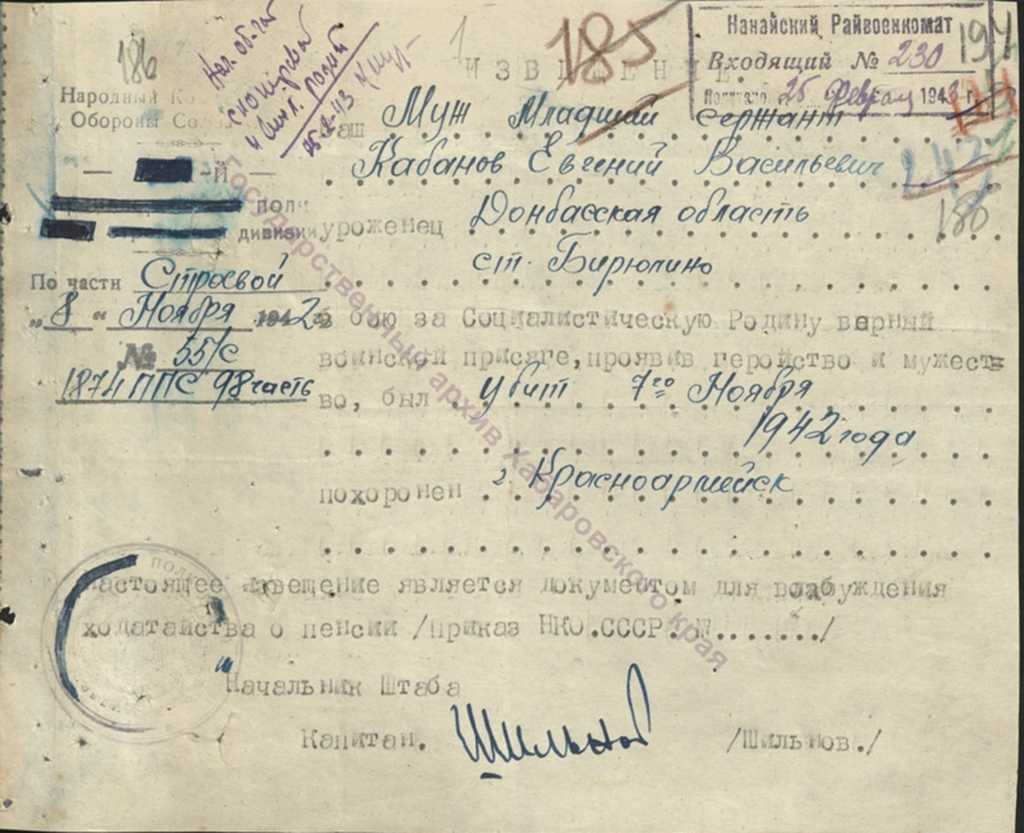 186
1
185
Нанайский Райвоенкомат
Входящий № 230
25 февраля 194
194
ИЗВЕЩЕНИЕ
Народный Ко
Обороны Союз
Ваш Муж Младший сержант
Кабанов Евгений Васильевич
180
-й —
полк
дивизии
уроженец Донбасская область
ст. Бирюлино
По части Строевой
„8“ Ноября 1942
№ 55/с
1874 ППС 98 часть
в бою за Социалистическую Родину верный
воинской присяге, проявив геройство и мужест=
во, был убит 7го Ноября
1942 года
похоронен г. Красноармейск
Настоящее извещение является документом для возбуждения
ходатайства о пенсии /Приказ НКО.СССР. №......./
Начальник Штаба
Капитан. /Шильнов./
Государственный архив Хабаровского края